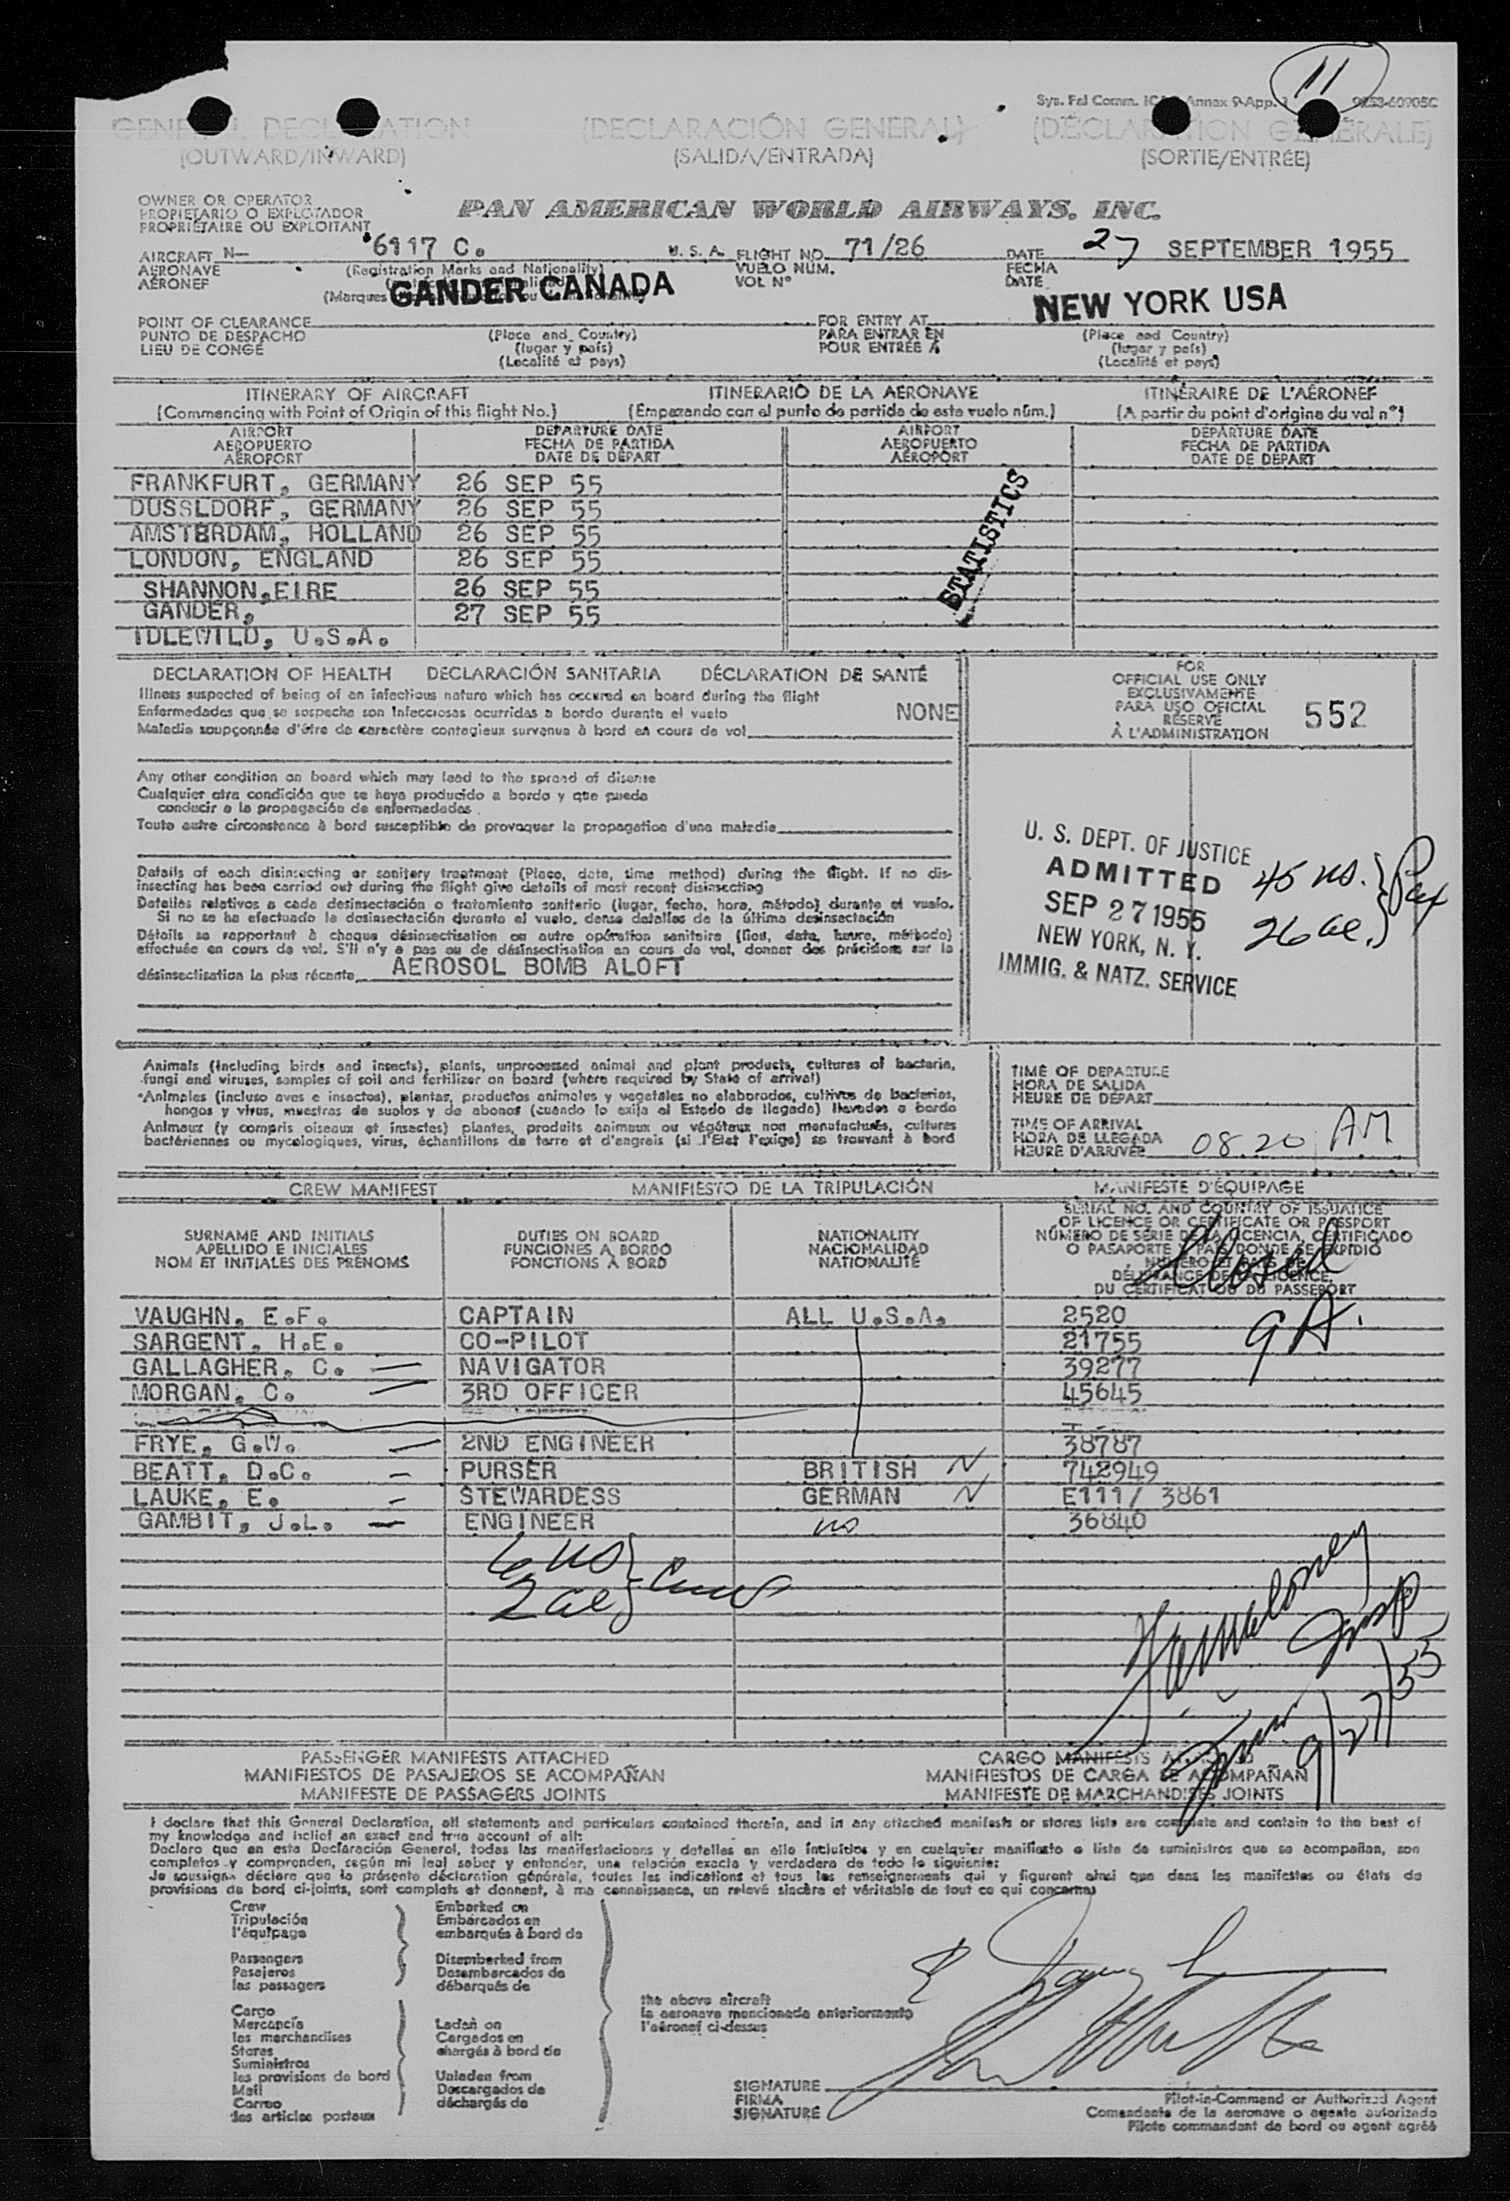 11
Sys. Fal Comm. ICAO Annex 9-App. 1 9853-60905C
GENERAL DECLARATION (DECLARACIÓN GENERAL) (DÉCLARATION GÉNÉRALE)
(OUTWARD/INWARD) (SALIDA/ENTRADA) (SORTIE/ENTRÉE)
OWNER OR OPERATOR
PROPIETARIO O EXPLOTADOR
PROPRIÉTAIRE OU EXPLOITANT
PAN AMERICAN WORLD AIRWAYS, INC.
AIRCRAFT N- 6117 C. U. S. A. FLIGHT NO. 71/26 DATE 27 SEPTEMBER 1955
AERONAVE (Registration Marks and Nationality) VUELO NÚM. FECHA
AÉRONEF VOL Nº DATE
(Marques
GANDER CANADA NEW YORK USA
POINT OF CLEARANCE FOR ENTRY AT
PUNTO DE DESPACHO (Place and Country) PARA ENTRAR EN (Place and Country)
LIEU DE CONGÉ (lugar y país) POUR ENTRÉE À (lugar y país)
(Localité et pays) (Localité et pays)
ITINERARY OF AIRCRAFT ITINERARIO DE LA AERONAVE ITINÉRAIRE DE L'AÉRONEF
(Commencing with Point of Origin of this flight No.) (Empezando con el punto de partida de este vuelo núm.) (A partir du point d'origine du vol nº)
AIRPORT DEPARTURE DATE AIRPORT DEPARTURE DATE
AEROPUERTO FECHA DE PARTIDA AEROPUERTO FECHA DE PARTIDA
AÉROPORT DATE DE DÉPART AÉROPORT DATE DE DÉPART
FRANKFURT, GERMANY 26 SEP 55
DUSSLDORF, GERMANY 26 SEP 55
AMSTERDAM, HOLLAND 26 SEP 55
LONDON, ENGLAND 26 SEP 55
SHANNON,EIRE 26 SEP 55
GANDER, 27 SEP 55
IDLEWILD, U.S.A.
STATISTICS
DECLARATION OF HEALTH DECLARACIÓN SANITARIA DÉCLARATION DE SANTÉ
Illness suspected of being of an infectious nature which has occured on board during the flight
Enfermedades que se sospecha son infecciosas ocurridas a bordo durante el vuelo NONE
Maladie soupçonnée d'être de caractère contagieux survenue à bord en cours de vol
FOR
OFFICIAL USE ONLY
EXCLUSIVAMENTE
PARA USO OFICIAL
RÉSERVÉ
À L'ADMINISTRATION
552
Any other condition on board which may lead to the spread of disease
Cualquier otra condición que se haya producido a bordo y que pueda
conducir a la propagación de enfermedades
Toute autre circonstance à bord susceptible de provoquer la propagation d'une maladie
Details of each disinsecting or sanitary treatment (Place, date, time method) during the flight. If no dis-
insecting has been carried out during the flight give details of most recent disinsecting
Detalles relativos a cada desinsectación o tratamiento sanitario (lugar, fecha, hora, método) durante el vuelo.
Si no se ha efectuado la desinsectación durante el vuelo, dense detalles de la última desinsectación
Détails se rapportant à chaque désinsectisation ou autre opération sanitaire (lieu, date, heure, méthode)
effectuée en cours de vol. S'il n'y a pas eu de désinsectisation en cours de vol, donner des précisions sur la
désinsectisation la plus récente AEROSOL BOMB ALOFT
U. S. DEPT. OF JUSTICE
ADMITTED
SEP 27 1955
NEW YORK, N. Y.
IMMIG. & NATZ. SERVICE
45 US. } Pax
26 al.
Animals (including birds and insects), plants, unprocessed animal and plant products, cultures of bacteria,
fungi and viruses, samples of soil and fertilizer on board (where required by State of arrival)
Animales (incluso aves e insectos), plantas, productos animales y vegetales no elaborados, cultivos de bacterias,
hongos y virus, muestras de suelos y de abonos (cuando lo exija el Estado de llegada) llevados a bordo
Animaux (y compris oiseaux et insectes) plantes, produits animaux ou végétaux non manufacturés, cultures
bactériennes ou mycologiques, virus, échantillons de terre et d'engrais (si l'État l'exige) se trouvant à bord
TIME OF DEPARTURE
HORA DE SALIDA
HEURE DE DÉPART
TIME OF ARRIVAL
HORA DE LLEGADA
HEURE D'ARRIVÉE 08.20 AM
CREW MANIFEST MANIFIESTO DE LA TRIPULACIÓN MANIFESTE D'ÉQUIPAGE
SURNAME AND INITIALS DUTIES ON BOARD NATIONALITY
APELLIDO E INICIALES FUNCIONES A BORDO NACIONALIDAD
NOM ET INITIALES DES PRÉNOMS FONCTIONS À BORD NATIONALITÉ
SERIAL NO. AND COUNTRY OF ISSUANCE
OF LICENCE OR CERTIFICATE OR PASSPORT
NÚMERO DE SERIE DE LA LICENCIA, CERTIFICADO
O PASAPORTE Y PAÍS DONDE SE EXPIDIÓ
NUMÉRO ET PAYS DE
DÉLIVRANCE DE LA LICENCE,
DU CERTIFICAT OU DU PASSEPORT
Closed
GA.
VAUGHN, E.F. CAPTAIN ALL U.S.A. 2520
SARGENT, H.E. CO-PILOT 21755
GALLAGHER, C. NAVIGATOR 39277
MORGAN, C. 3RD OFFICER 45645
FRYE, G.W. 2ND ENGINEER 38787
BEATT, D.C. PURSER BRITISH 742949
LAUKE, E. STEWARDESS GERMAN E111/ 3861
GAMBIT, J.L. ENGINEER US 36840
6 US } Crew
2 al
9/27/55
PASSENGER MANIFESTS ATTACHED CARGO MANIFESTS ATTACHED
MANIFIESTOS DE PASAJEROS SE ACOMPAÑAN MANIFIESTOS DE CARGA SE ACOMPAÑAN
MANIFESTE DE PASSAGERS JOINTS MANIFESTE DE MARCHANDISES JOINTS
I declare that this General Declaration, all statements and particulars contained therein, and in any attached manifests or stores lists are complete and contain to the best of
my knowledge and belief an exact and true account of all:
Declaro que en esta Declaración General, todas las manifestaciones y detalles en ella incluídos y en cualquier manifiesto o lista de suministros que se acompañan, son
completos y comprenden, según mi leal saber y entender, una relación exacta y verdadera de todo lo siguiente:
Je soussigné déclare que la présente déclaration générale, toutes les indications et tous les renseignements qui y figurent ainsi que dans les manifestes ou états de
provisions de bord ci-joints, sont complets et donnent, à ma connaissance, un relevé sincère et véritable de tout ce qui concerne:
Crew Embarked on
Tripulación Embarcados en
l'équipage embarqués à bord de
Passengers Disembarked from
Pasajeros Desembarcados de
les passagers débarqués de
Cargo
Mercancía Laden on
les marchandises Cargados en
Stores chargés à bord de
Suministros
les provisions de bord Unladen from
Mail Descargados de
Correo déchargés de
les articles postaux
the above aircraft
la aeronave mencionada anteriormente
l'aéronef ci-dessus
SIGNATURE
FIRMA
SIGNATURE
Pilot-in-Command or Authorized Agent
Comandante de la aeronave o agente autorizado
Pilote commandant de bord ou agent agréé